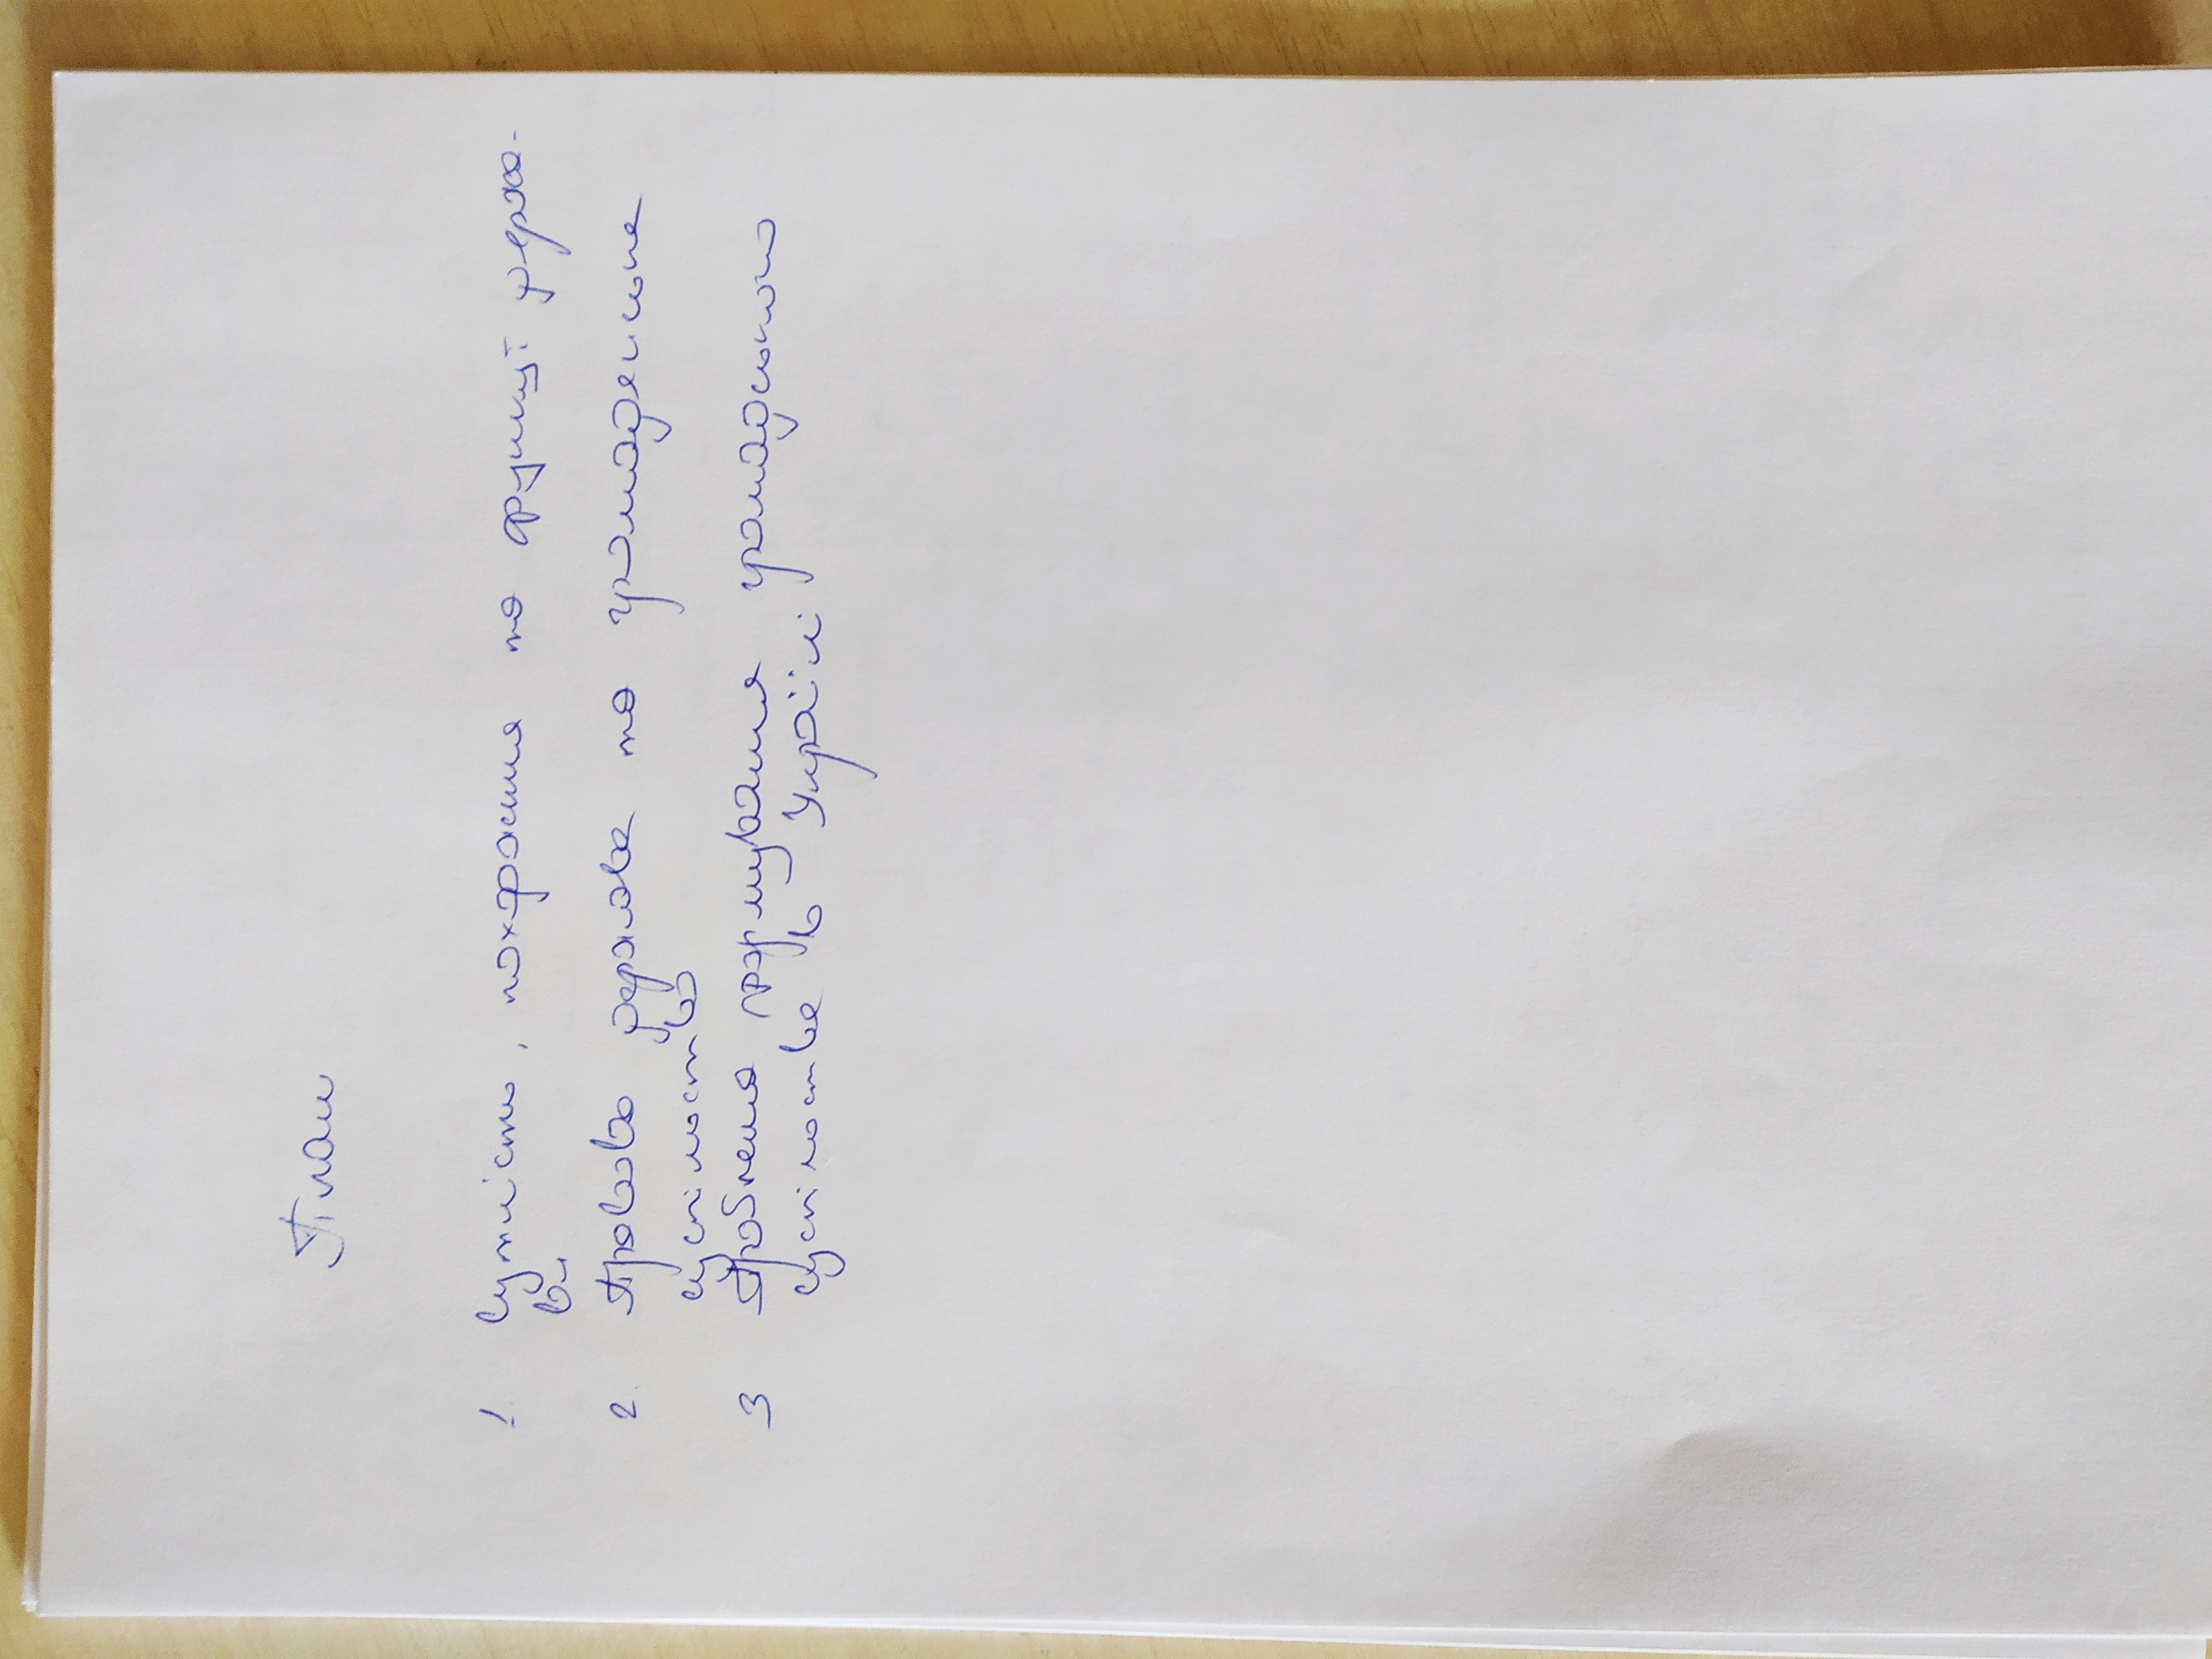 План
1. Сутність, походження та функції держа-
ви
2. Правова держава та громадянське
суспільство
3 Проблема формування громадського
суспільства в Україні